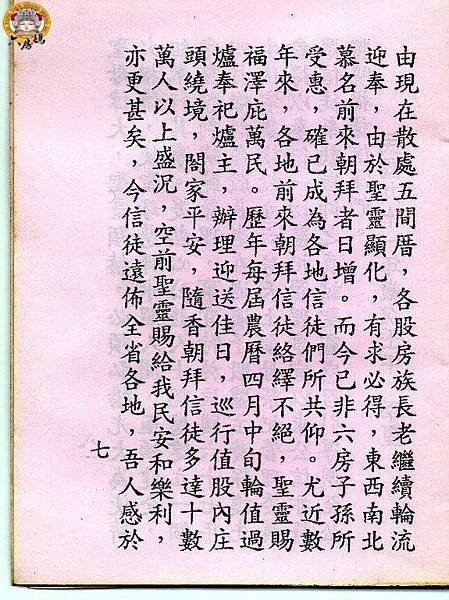 由現在散處五間厝，各股房族長老繼續輪流
迎奉，由於聖靈顯化，有求必得，東西南北
慕名前來朝拜者日增。而今已非六房子孫所
受惠，確已成為各地信徒們所共仰。尤近數
年來，各地前來朝拜信徒絡繹不絕，聖靈賜
福澤庇萬民。歷年每屆農曆四月中旬輪值過
爐奉祀爐主，辦理迎送佳日，巡行值股內庄
頭繞境，閤家平安，隨香朝拜信徒多達十數
萬人以上盛況，空前聖靈賜給我民安和樂利，
亦更甚矣，今信徒遠佈全省各地，吾人感於
七